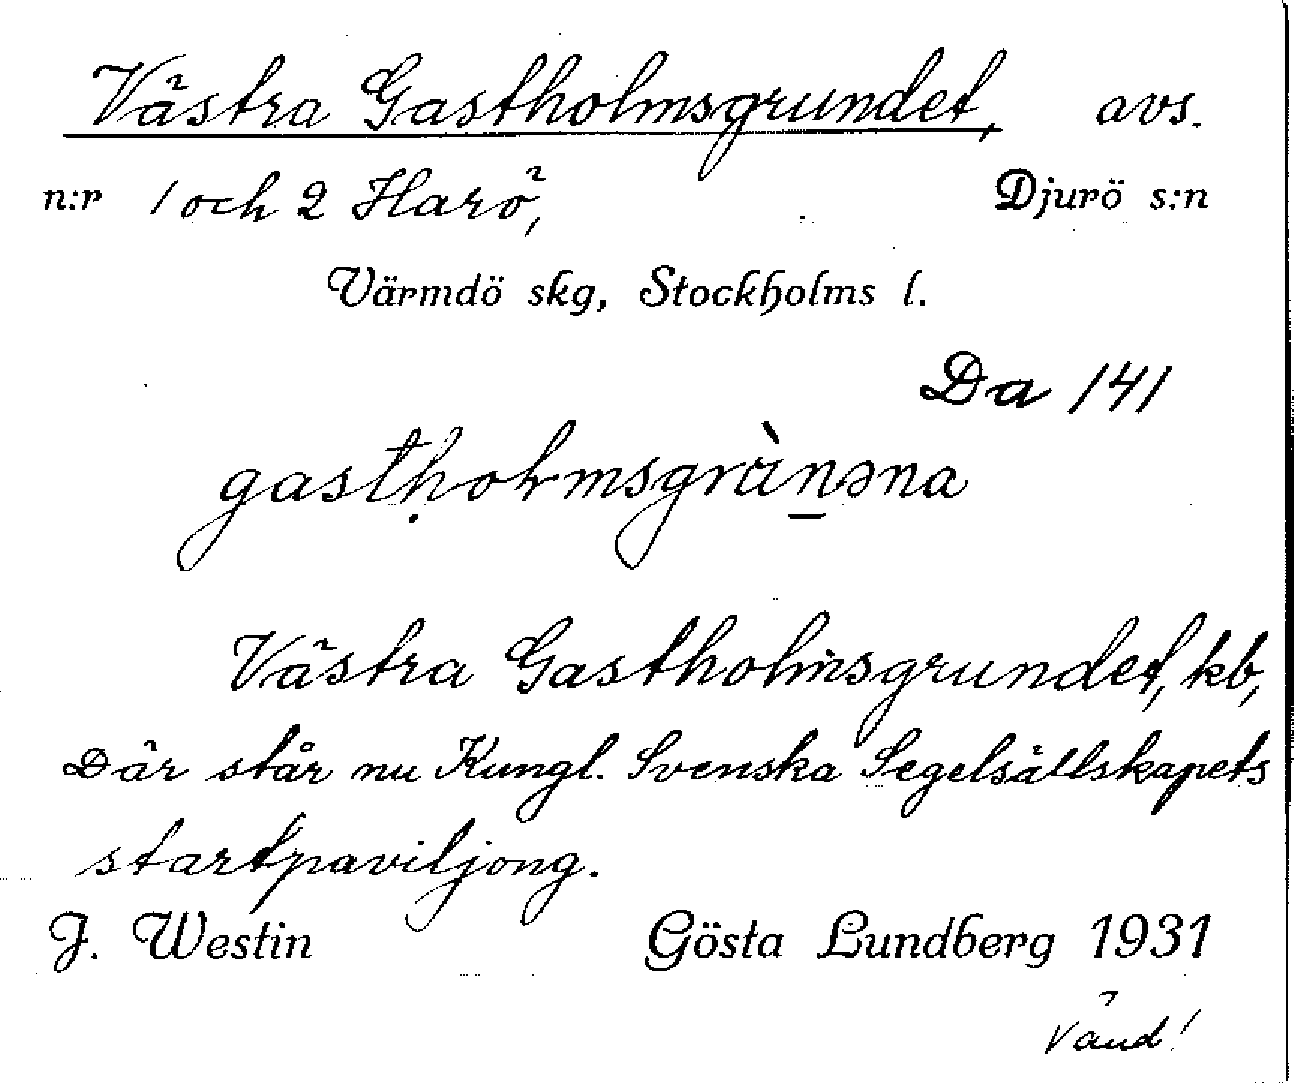 Västra Gastholmsgrundet, avs.
n:r 1 och 2 Harö, Djurö s:n
Värmdö skg, Stockholms l.
Da 141
Västra Gastholmsgrundet, kb,
Där står nu Kungl. Svenska Segelsällskapets
startpaviljong.
J. Westin Gösta Lundberg 1931
Vänd!